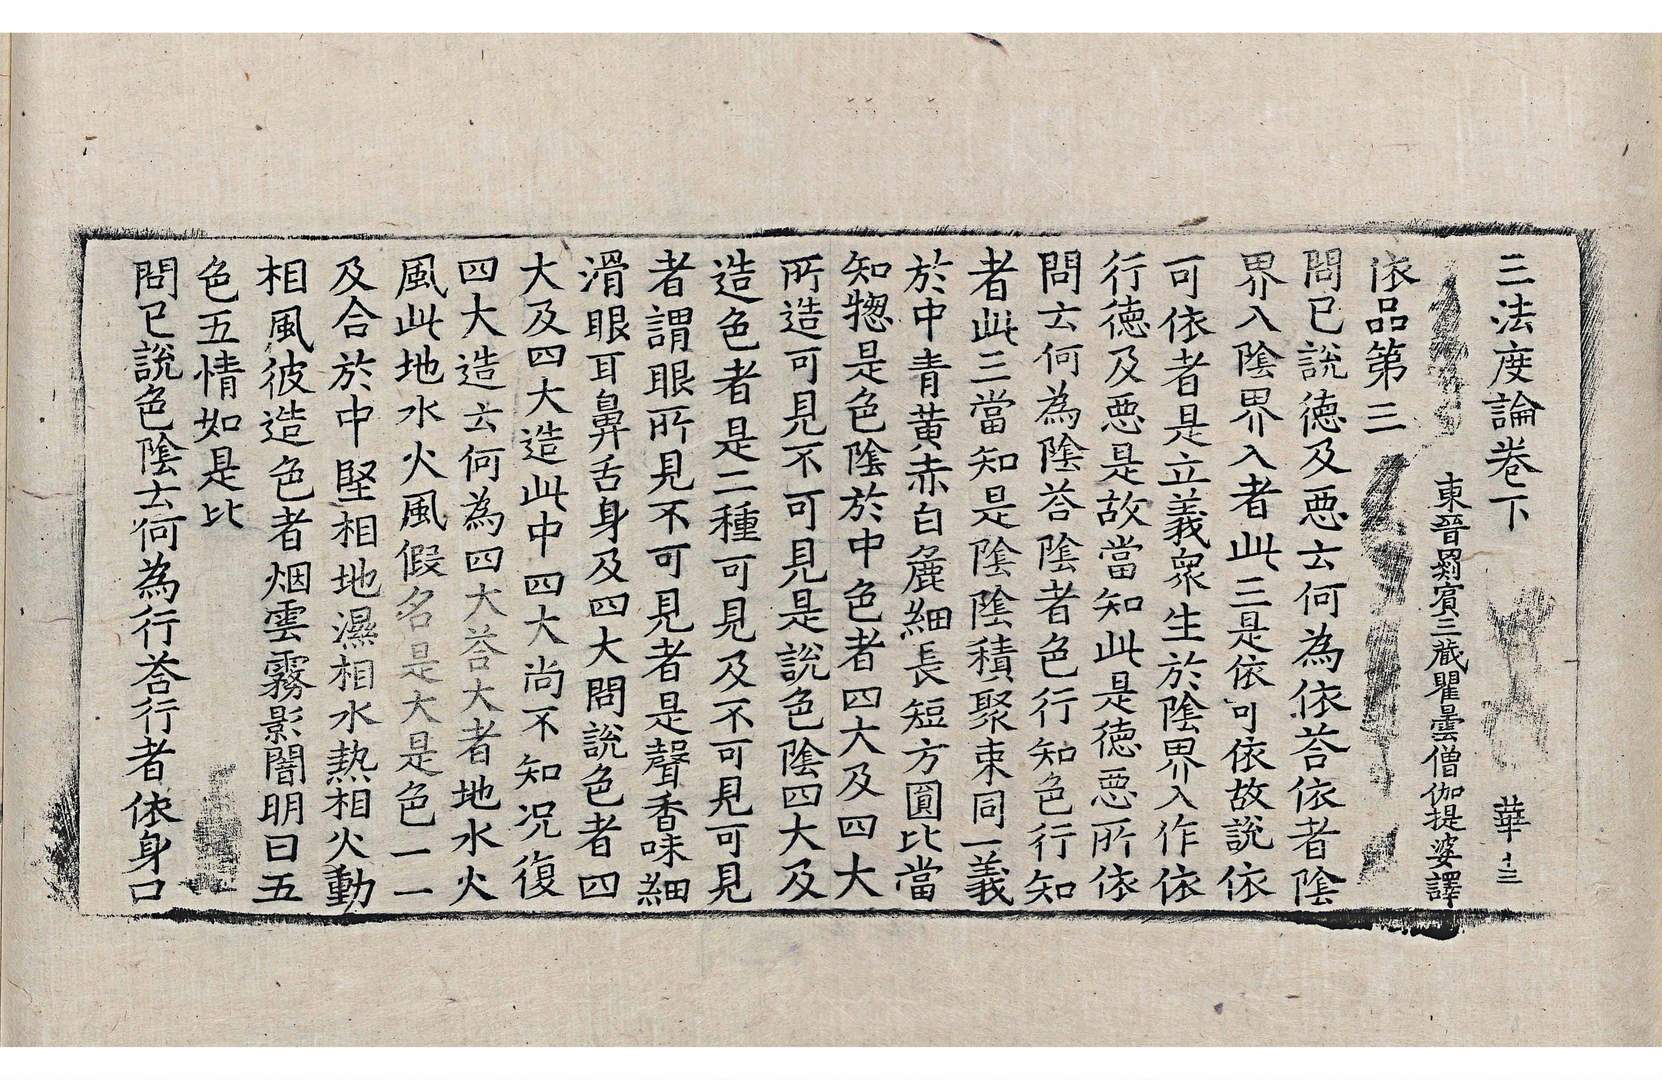 三法度論卷下 華 十三
東晉罽賓三藏瞿曇僧伽提婆譯
依品第三
問已說德及惡云何爲依荅依者陰
界入陰界入者此三是依可依故說依
可依者是立義衆生於陰界入作依
行德及惡是故當知此是德惡所依
問云何爲陰荅陰者色行知色行知
者此三當知是陰陰積聚束同一義
於中青黃赤白麁細長短方圓比當
知揔是色陰於中色者四大及四大
所造可見不可見是說色陰四大及
造色者是二種可見及不可見可見
者謂眼所見不可見者是聲香味細
滑眼耳鼻舌身及四大問說色者四
大及四大造此中四大尚不知況復
四大造云何爲四大荅大者地水火
風此地水火風假名是大是色一一
及合於中堅相地濕相水熱相火動
相風彼造色者烟雲霧影闇明曰五
色五情如是比
問已說色陰云何爲行荅行者依身口